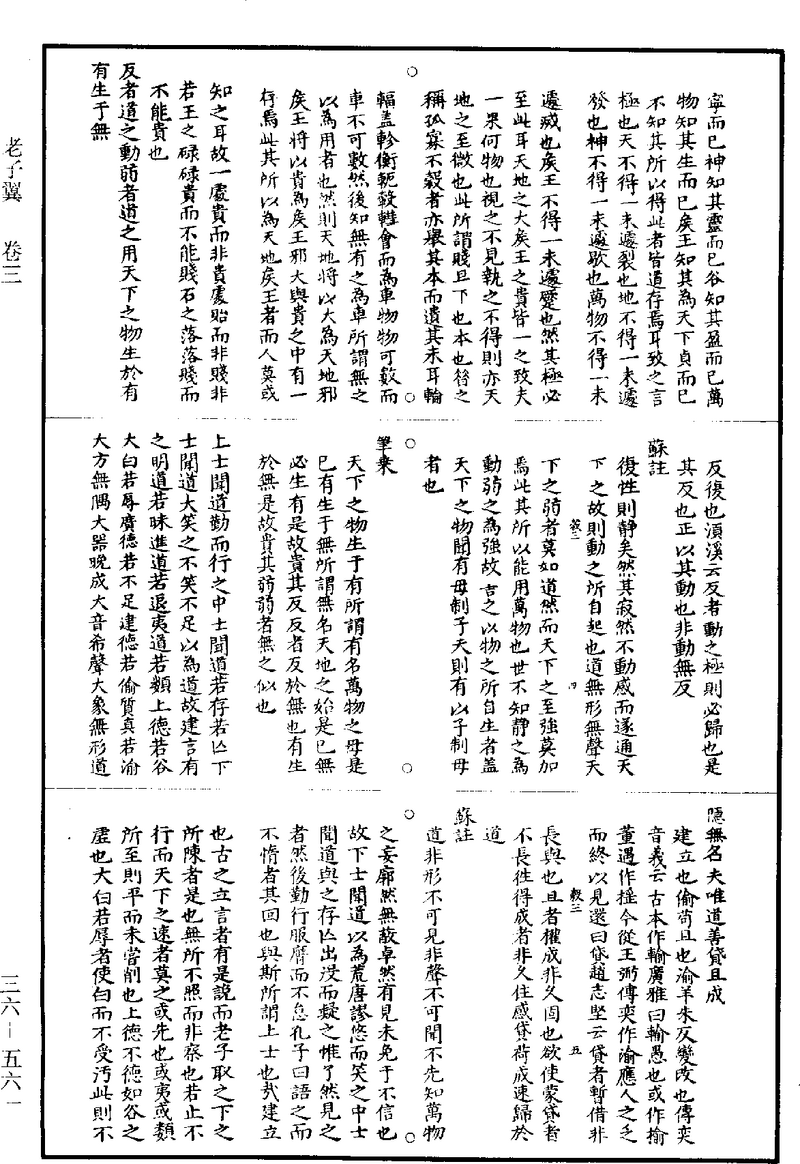 老子翼　卷三
三六—五六一
寧而已神知其靈而已谷知其盈而已萬
物知其生而已矦王知其為天下貞而已
不知其所以得此者皆道存焉耳致之言
極也天不得一未遽裂也地不得一未遽
發也神不得一未遽歇也萬物不得一未
遽滅也矦王不得一未遽蹷也然其極必
至此耳天地之大矦王之貴皆一之致夫
一果何物也視之不見執之不得則亦天
地之至微也此所謂賤且下也本也昝之
稱孤寡不穀者亦舉其本而遺其末耳輪
輻蓋軫衡軛轂轊會而為車物物可數而
車不可數然後知無有之為車所謂無之
以為用者也然則天地將以大為天地邪
矦王將以貴為矦王邪大與貴之中有一
存焉此其所以為天地矦王者而人莫或
知之耳故一處貴而非貴處貽而非賤非
若王之碌碌貴而不能賤石之落落賤而
不能貴也
反者道之動弱者道之用天下之物生於有
有生于無
反復也湏溪云反者動之極則必歸也是
其反也正以其動也非動無反
蘇註
復性則靜矣然其寂然不動感而遂通天
下之故則動之所自起也道無形無聲天
穀三
四
下之弱者莫如道然而天下之至強莫加
焉此其所以能用萬物也世不知靜之為
動弱之為強故言之以物之所自生者蓋
天下之物聞有母制子天則有以子制母
者也
筆乘
天下之物生于有所謂有名萬物之母是
已有生于無所謂無名天地之始是已無
必生有是故貴其反反者反於無也有生
於無是故貴其弱弱者無之似也
上士聞道勤而行之中士聞道若存若亾下
士聞道大笑之不笑不足以為道故建言有
之明道若昧進道若退夷道若纇上德若谷
大白若辱廣德若不足建德若偷質真若渝
大方無隅大器晚成大音希聲大象無形道
隱無名夫唯道善貸且成
建立也偷苟且也渝羊朱反變改也傅奕
音義云古本作輸廣雅曰輸愚也或作揄
董遇作搖今從王弼傅奕作渝應人之乏
而終以見還曰貸趙志堅云貸者暫借非
穀三
五
長與也且者權成非久固也欲使蒙貸者
不長徃得成者非久住感貸荷成速歸於
道
蘇註
道非形不可見非聲不可聞不先知萬物
之妄廓然無蔽卓然有見未免于不信也
故下士聞道以為荒唐謬悠而笑之中士
聞道與之存亾出沒而疑之惟了然見之
者然後勤行服膺而不怠孔子曰語之而
不惰者其回也與斯所謂上士也㢤建立
也古之立言者有是說而老子取之下之
所陳者是也無所不照而非察也若止不
行而天下之速者莫之或先也或夷或纇
所至則平而未嘗削也上德不德如谷之
虛也大白若辱者使白而不受汚此則不